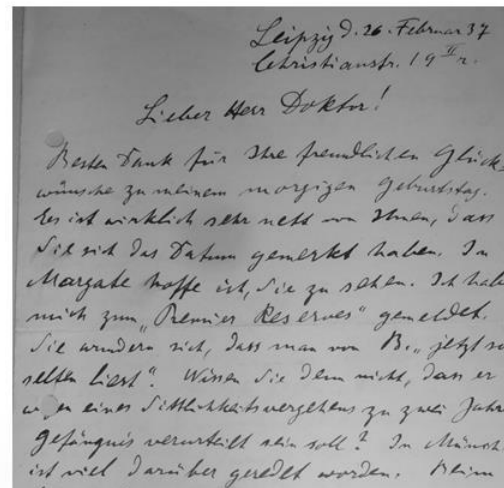 Leipzig d. 26. Februar 37
Christianstr. 19 II r.
Lieber Herr Doktor!
Besten Dank für Ihre freundlichen Glück-
wünsche zu meinem morgigen Geburtstag.
Es ist wirklich sehr nett von Ihnen, dass
Sie sich das Datum gemerkt haben. In
Margate hoffe ich, Sie zu sehen. Ich hab
mich zum „Premier Reserves" gemeldet.
Sie wundern sich, dass man von B. „jetzt so
selten liest". Wissen Sie denn nicht, dass er
wegen eines Sittlichkeitsvergehens zu zwei Jahr
Gefängnis verurteilt sein soll? In Münch
ist viel darüber geredet worden. Beim